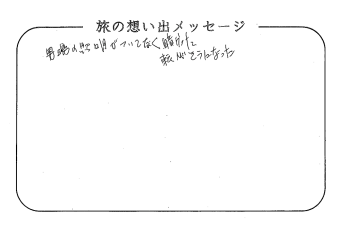 旅の想い出メッセージ
男湯の照明がついてなく暗かくて
転びそうになった